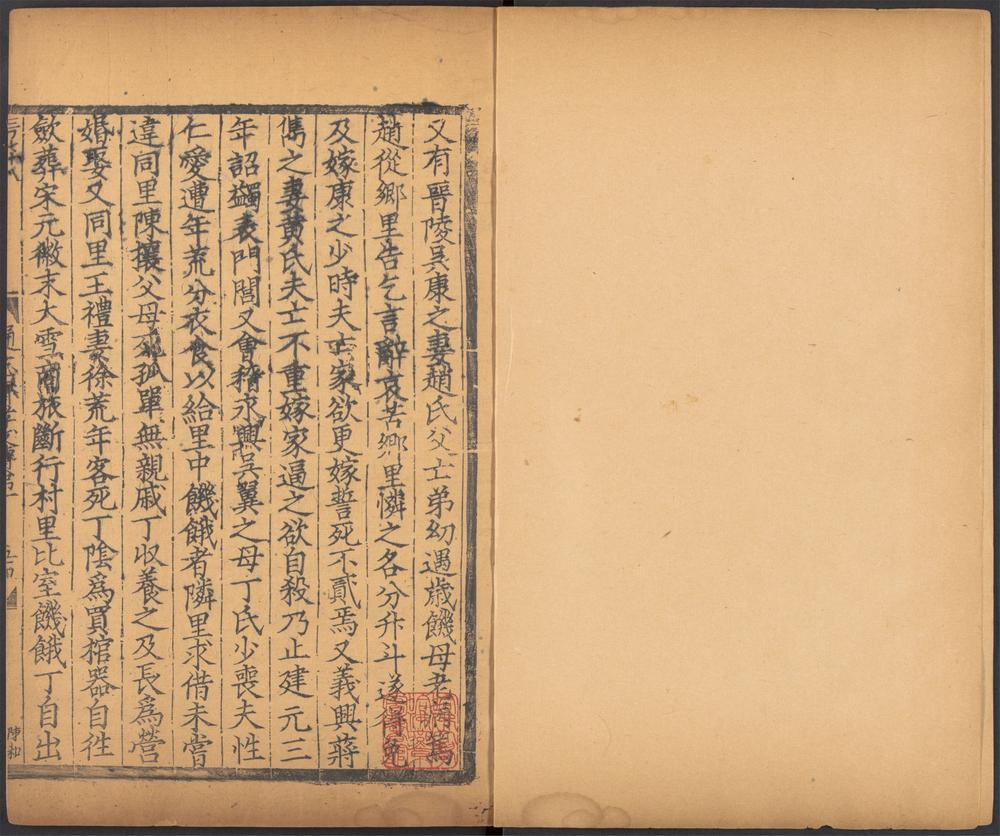 又有晉陵吳康之妻趙氏父亡弟幼遇歲饑母老病篤
趙從鄉里告乞言辭哀苦鄉里憐之各分升斗遂得免
及嫁康之少時夫亡家欲更嫁誓死不貳焉又義興蔣
儁之妻黃氏夫亡不重嫁家逼之欲自殺乃止建元三
年詔蠲表門閭又會稽永興吳翼之母丁氏少喪夫性
仁愛遭年荒分衣食以給里中饑餓者隣里求借未嘗
違同里陳攘父母死孤單無親戚丁收養之及長爲營
婚娶又同里王禮妻徐荒年客死丁陰爲買棺器自徃
斂葬宋元徽末大雪商旅斷行村里比室饑餓丁自出
陳和